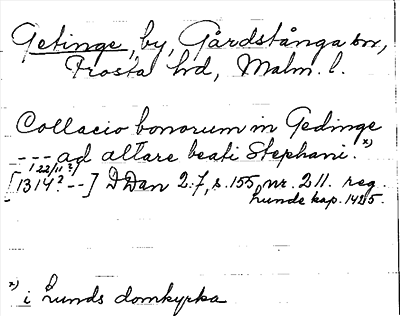 Getinge, by, Gårdstånga sn,
Frosta hd, Malm. l.
Collacio bonorum in Gedinge
--- ad altare beati Stephani. x)
22/11 ?/
[1314? --] DDan 2:7, s. 155, nr. 211. reg.
Lunde kap. 1425.
x) i Lunds domkyrka